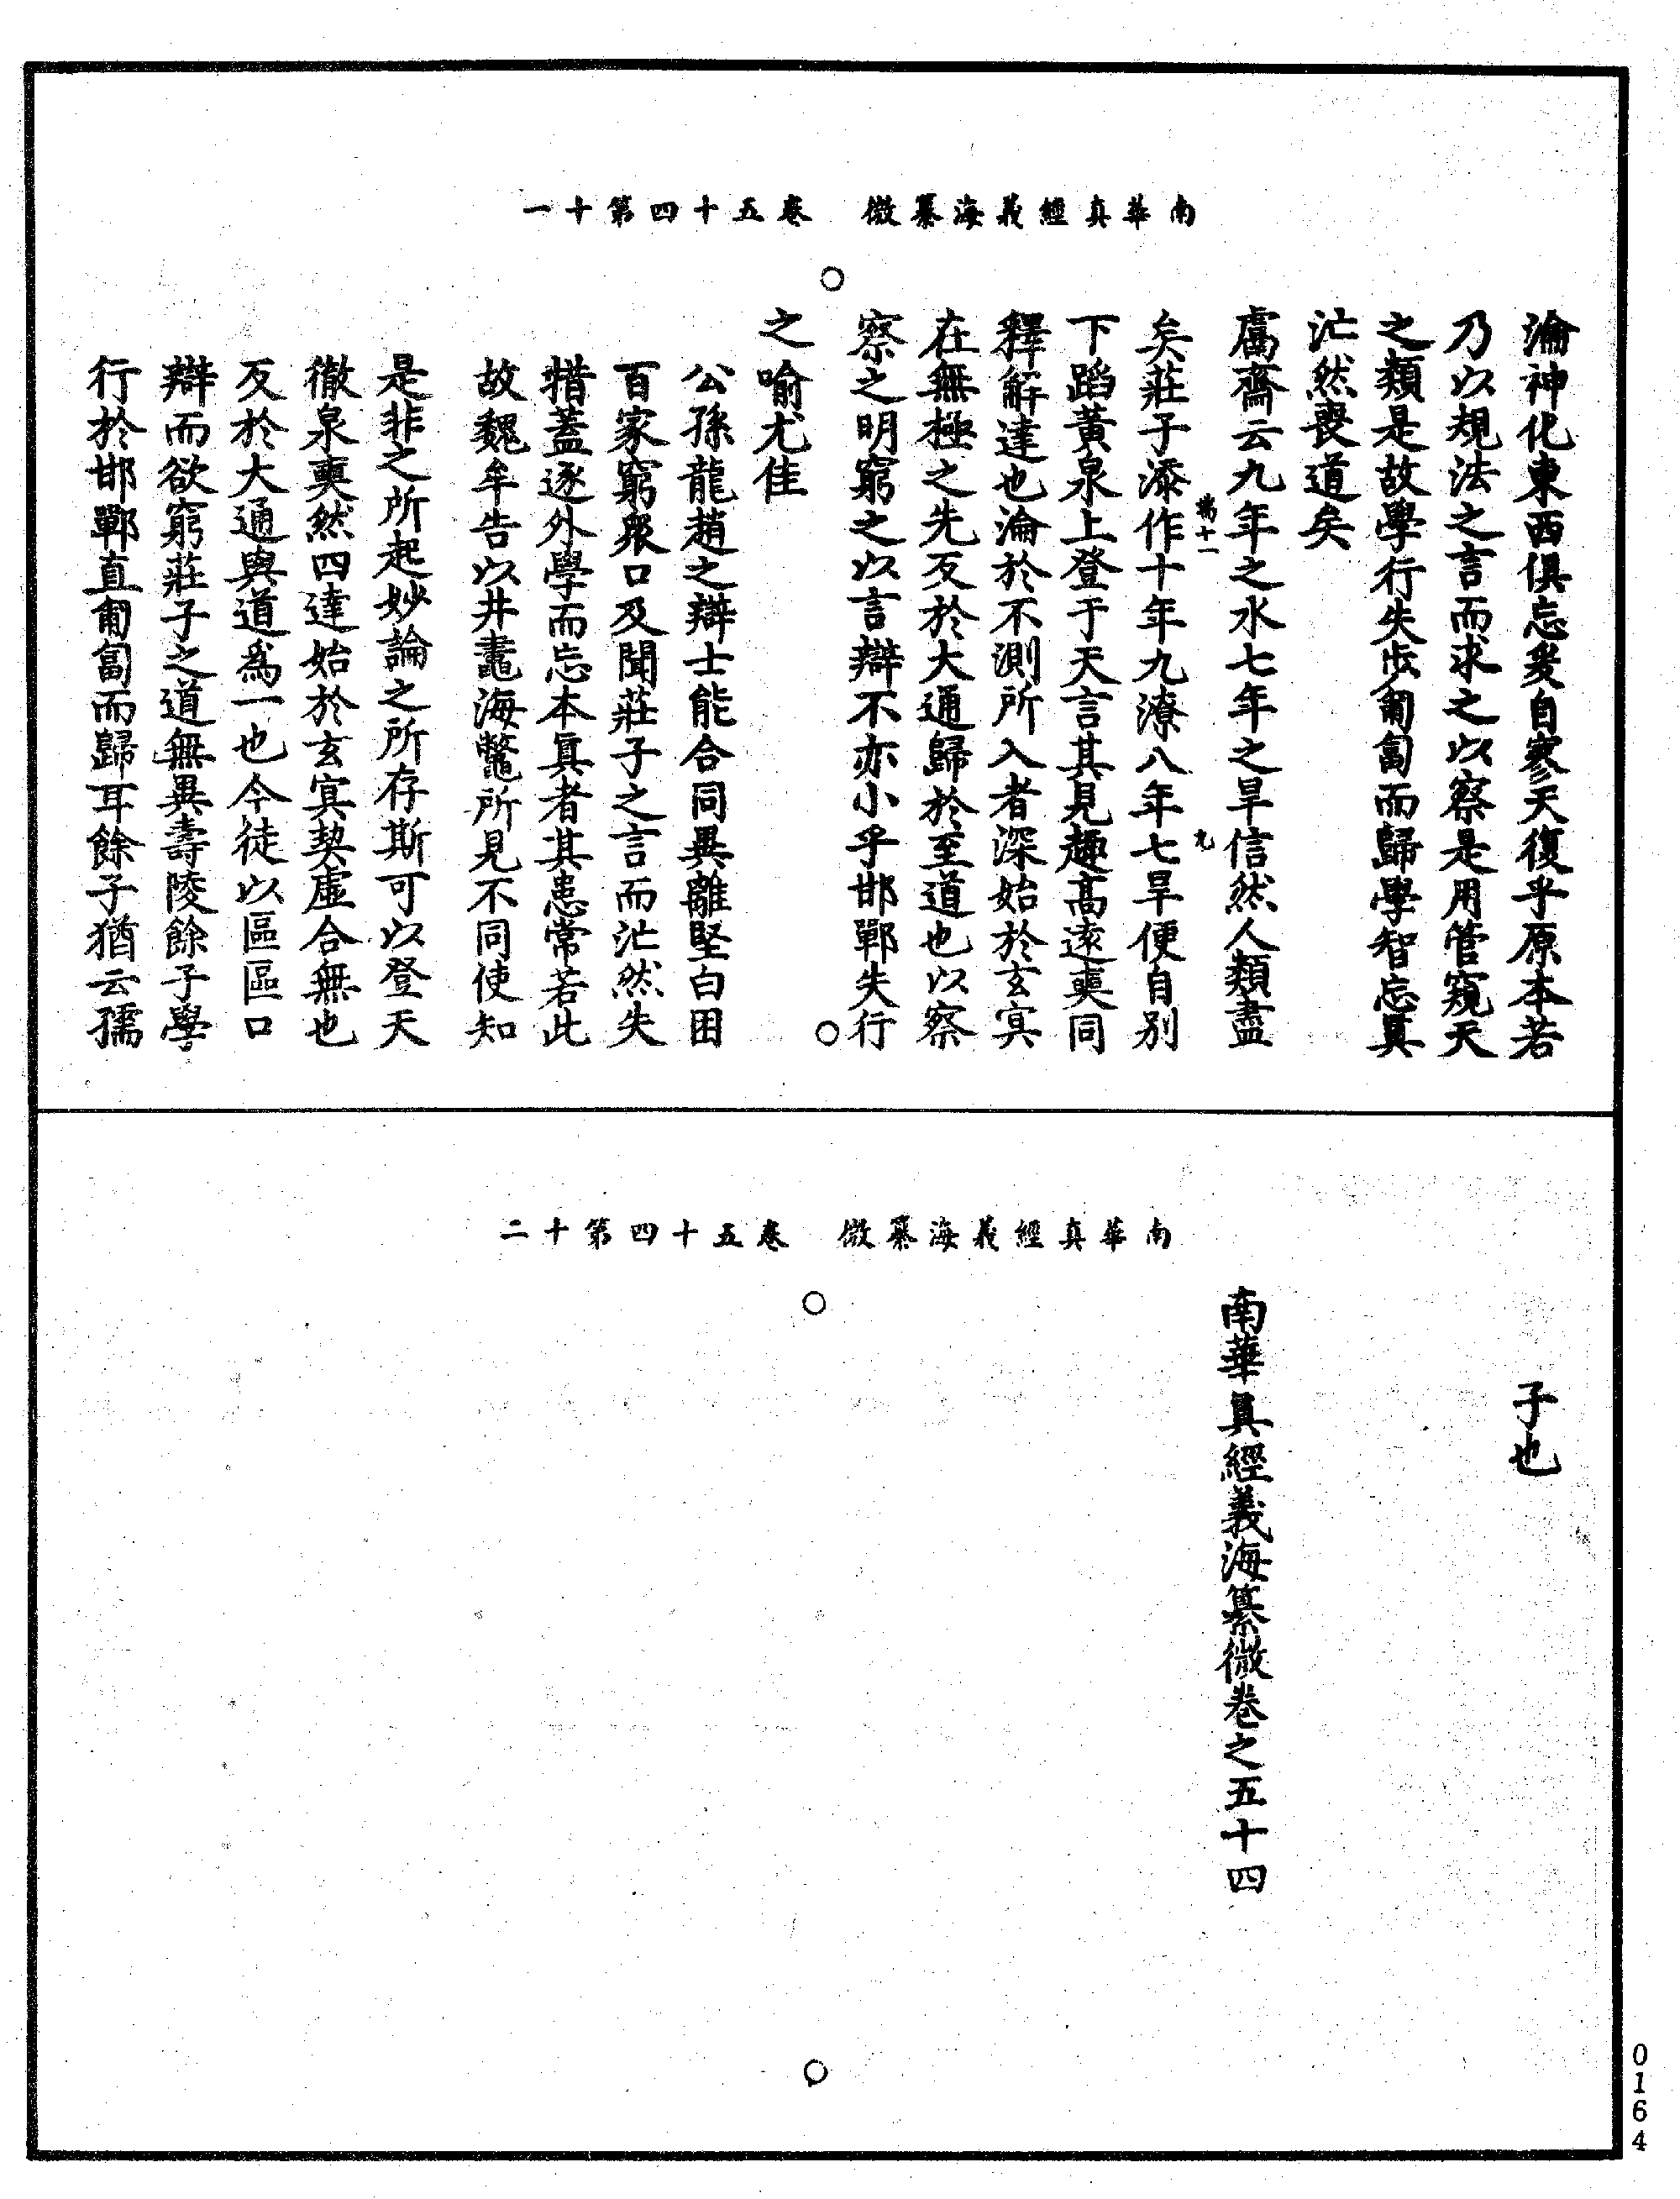 南華真經義海纂微　卷五十四第十一
淪神化東西俱忘爰自寥天復乎原本若
乃以規法之言而求之以察是用管窺天
之類是故學行失步匍匐而歸學智忘真
茫然喪道矣
鬳齋云九年之水七年之旱信然人類盡
矣莊子添作十年九潦八年七旱便自別
十一
九
下蹈黃泉上登于天言其見趣高遠奭同
釋解達也淪於不測所入者深始於玄冥
在無極之先反於大通歸於至道也以察
察之明窮之以言辯不亦小乎邯鄲失行
之喻尤佳
公孫龍趙之辯士能合同異離堅白困
百家窮眾口及聞莊子之言而茫然失
措蓋逐外學而忘本真者其患常若此
故魏牟告以井鼃海鼈所見不同使知
是非之所起妙論之所存斯可以登天
徹泉奭然四達始於玄冥契虛合無也
反於大通與道為一也今徒以區區口
辯而欲窮莊子之道無異壽陵餘子學
行於邯鄲直匍匐而歸耳餘子猶云孺
南華真經義海纂微　卷五十四第十二
子也
南華真經義海纂微卷之五十四
0164